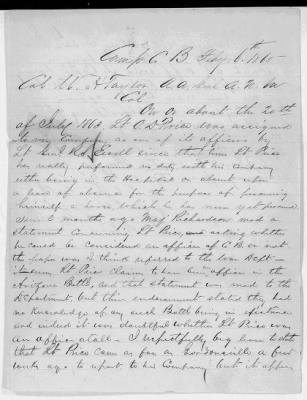 Camp C B Feby 6th 1865
Col W. H Taylor A. A.
Col
On or about the 20th
of July 1863 Lt C D Price was assigned
to my Company as an of its officers by
Lt Genl R S Ewell since that time Lt Price
has really performed no duty with his Company
either being in the Hospital or absent upon
a leave of absence for the purpose of procuring
himself a horse, which he has now yet procured
Some 2 months ago Maj Richardson mad a
statement concerning Lt Price, and asking whether
he could be considered an officer of C. B. or not
the paper was I think referred to the War Dept
Lt Price Claims to have been officer in the
Arizona Battl, and that statement was mad to the
Department, but their endorsement stated they had
no knowledge of any such Battl being in existence
and indeed it was doubtful whether Lt Price was
an officer at all. I respectfully beg leave to state
that Lt Price Cam as far as Gordonsville a few
weeks ago to report to his Company but it appear